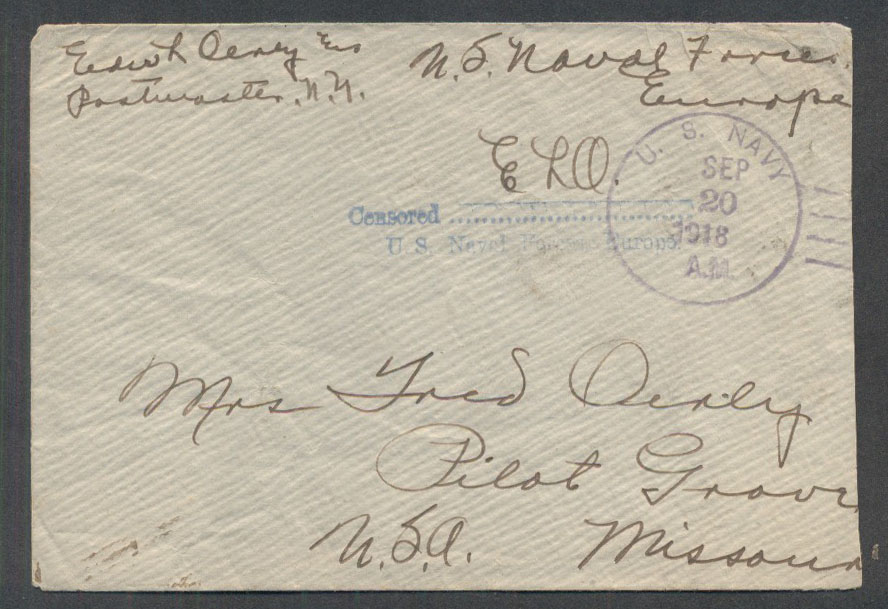 Postmaster. N.Y.
U.S. Naval Forces.
Europe
E L O.
U. S. NAVY
SEP
20
1918
A.M.
Censored
U. S. Naval Forces Europe
Mrs Fred Oerly
Pilot Grove
Missouri
U.S.A.